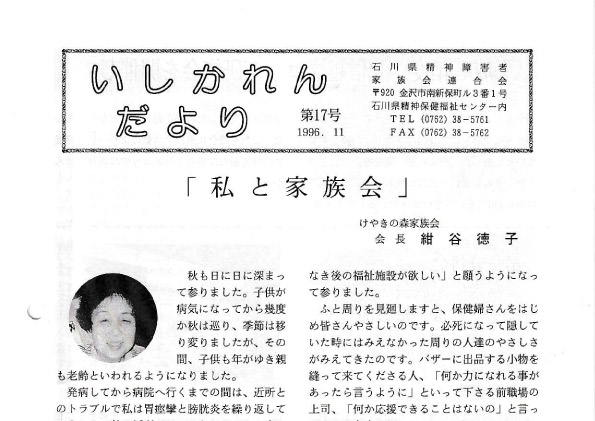 いしかれん
だより
第17号
1996. 11
石川県精神障害者
家族会連合会
〒920 金沢市南新保町ル3番1号
石川県精神保健福祉センター内
TEL (0762) 38-5761
FAX (0762) 38-5762
「私と家族会」
けやきの森家族会
会長 紺谷徳子
秋も日に日に深まっ
て参りました。子供が
病気になってから幾度
か秋は巡り、季節は移
り変りましたが、その
間、子供も年がゆき親
も老齢といわれるようになりました。
発病してから病院へ行くまでの間は、近所と
のトラブルで私は胃痙攣と膀胱炎を繰り返して
なき後の福祉施設が欲しい」と願うようになっ
て参りました。
ふと周りを見廻しますと、保健婦さんをはじ
め皆さんやさしいのです。必死になって隠して
いた時にはみえなかった周りの人達のやさしさ
がみえてきたのです。バザーに出品する小物を
縫って来てくださる人、「何か力になれる事が
あったら言うように」といって下さる前職場の
上司、「何か応援できることはないの」と言っ